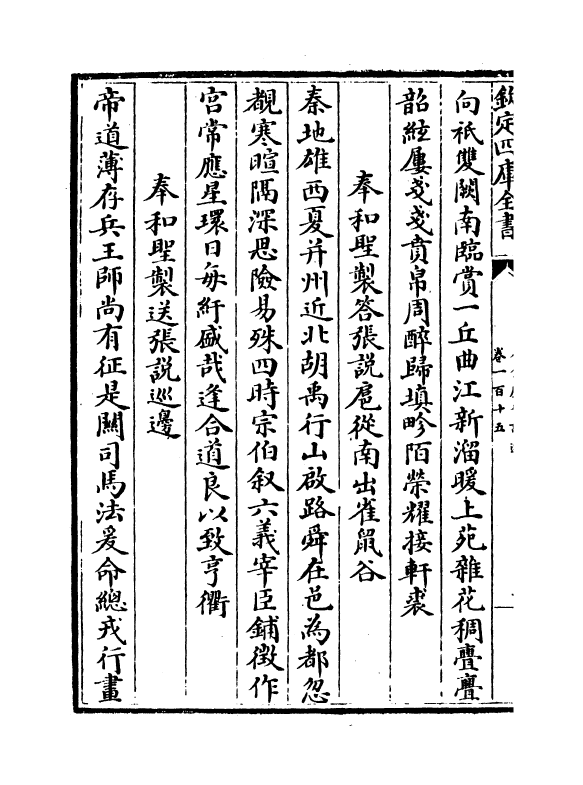 欽定四庫全書
卷一百十五
向祇雙闕南臨賞一丘曲江新溜暖上苑雜花稠亹亹
韶絃屢戔戔賁帛周醉歸填畛陌榮耀接軒裘
奉和聖製答張說扈從南出雀鼠谷
秦地雄西夏并州近北胡禹行山啟路舜在邑為都忽
覩寒暄隔深思險易殊四時宗伯叙六義宰臣鋪徵作
宫常應星環日每紆盛哉逢合道良以致亨衢
奉和聖製送張說巡邊
帝道薄存兵王師尚有征是關司馬法爰命總戎行畫